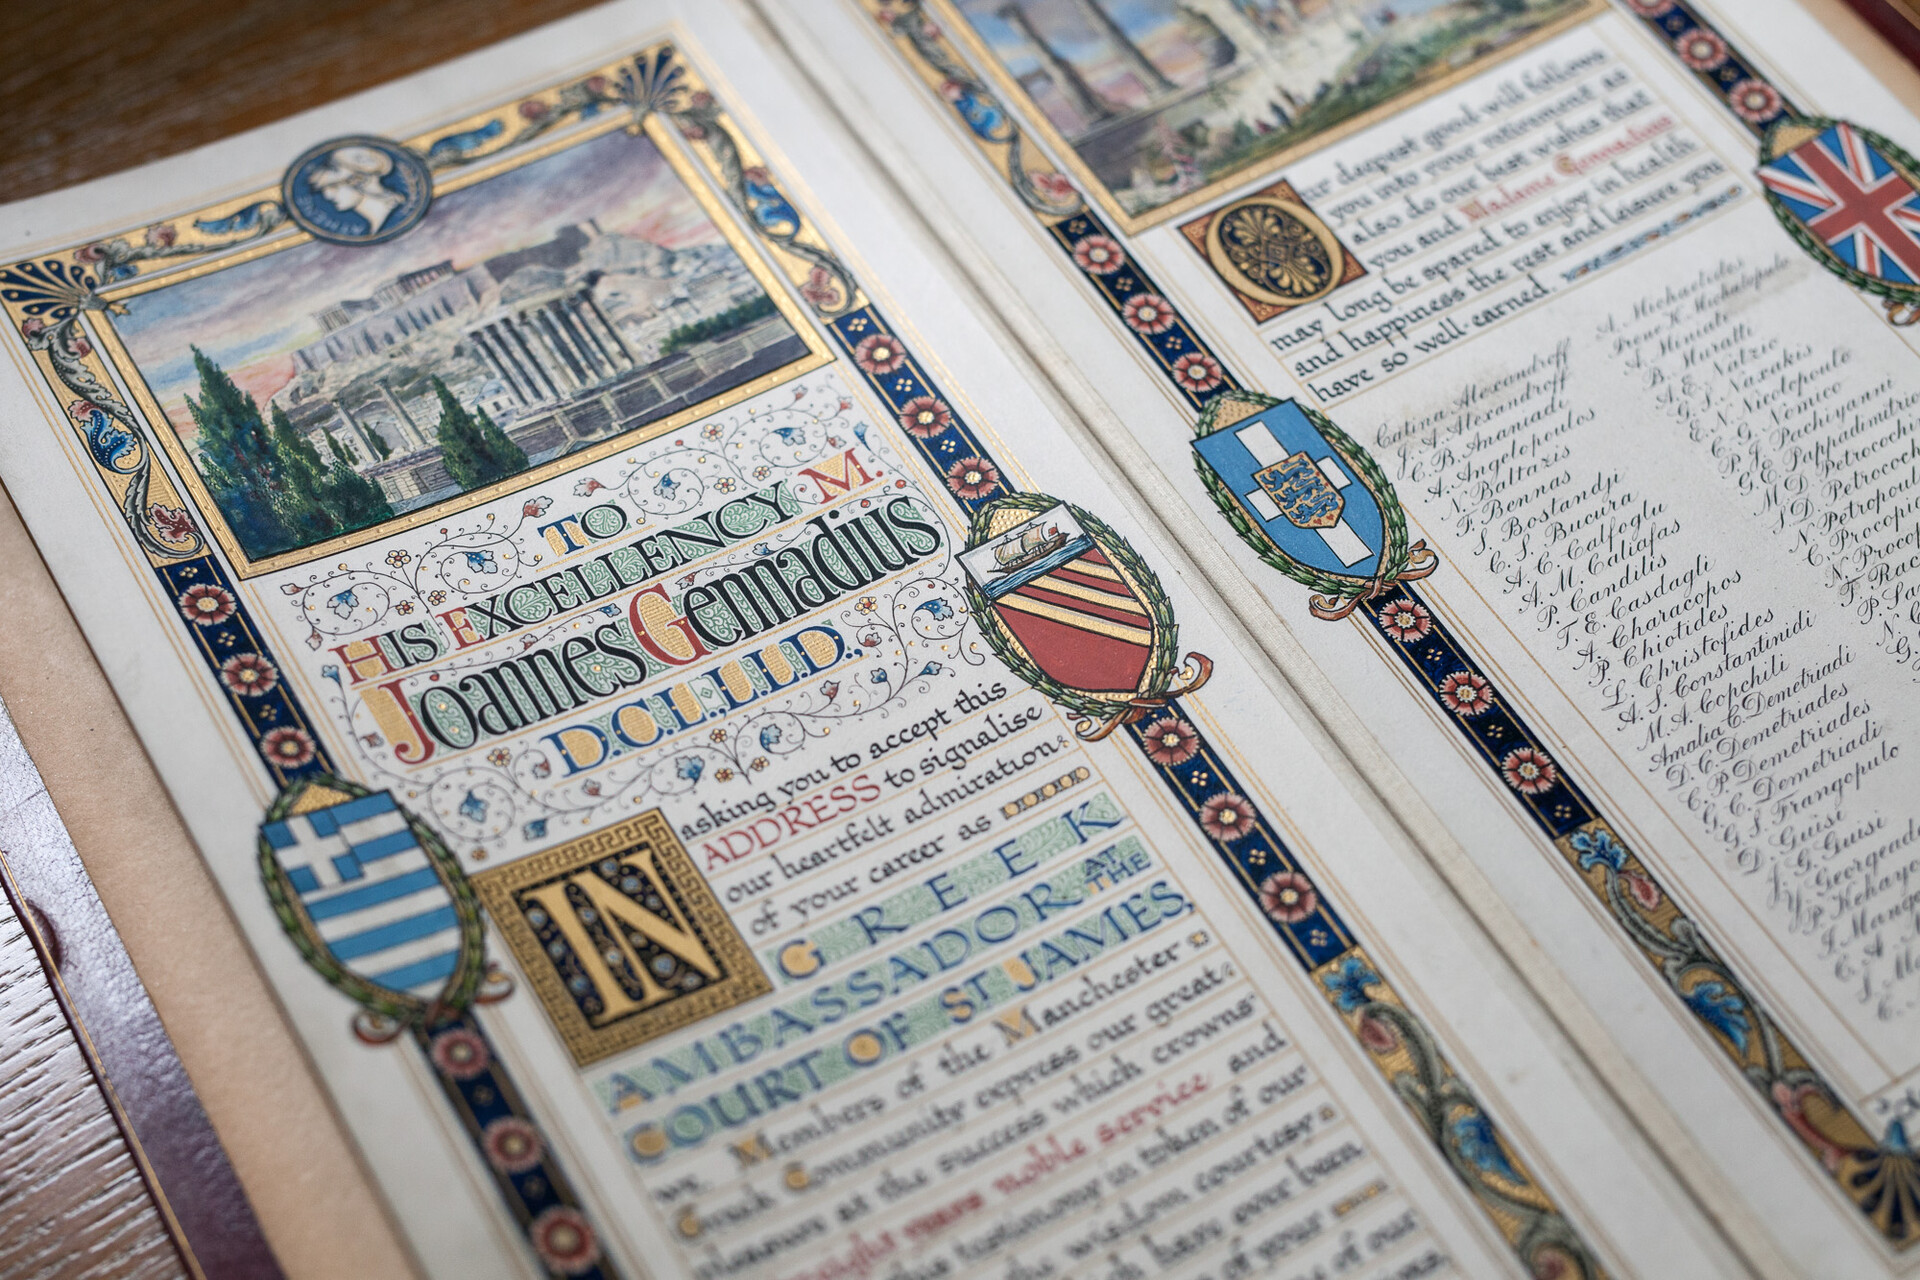 TO
HIS EXCELLENCY M.
Joannes Gennadius
D.C.L., LL.D.,
IN asking you to accept this
ADDRESS to signalise
our heartfelt admiration
of your career as
GREEK
AMBASSADOR AT THE
COURT OF ST JAMES,
we Members of the Manchester
Greek Community express our great
pleasure as the success which crowns
noble service and
this testimony in token of our
the wisdom courtesy
have ever been
of your
of our
Our deepest good will follows
you into your retirement as
also do our best wishes that
you and Madame Gennadius
may long be spared to enjoy in health
and happiness the rest and leisure you
have so well-earned.
Catina Alexandroff
J. A. Alexandroff
C. B. Ananiadi
A. Angelopoulos
N. Baltazis
F. Bennas
S. Bostandji
C. S. Bucura
A. C. Calfoglu
A. M. Caliafas
P. Candilis
T. E. Casdagli
A. Characopos
P. Chiotides
L. Christofides
A. S. Constantinidi
M. A. Copchili
Amalia C. Demetriadi
D. C. Demetriades
C. P. Demetriades
G. C. Demetriadi
G. S. Frangopulo
D. Guisi
J. G. Guisi
Georgend
P. Kehayo
J. Mango
A. Michaelides
Irene K. Michalopulo
S. Miniati
B. Muratti
A. E. Naltzio
G. S. Naxakis
E. N. Nicolopoulo
C. G. Nomico
P. J. Pachiyanni
G. E. Pappadimitrio
M. D. Petrocochi
J. D. Petrococh
N. Petropoul
C. Procopi
N. Procop
F. Rac
P. Sa